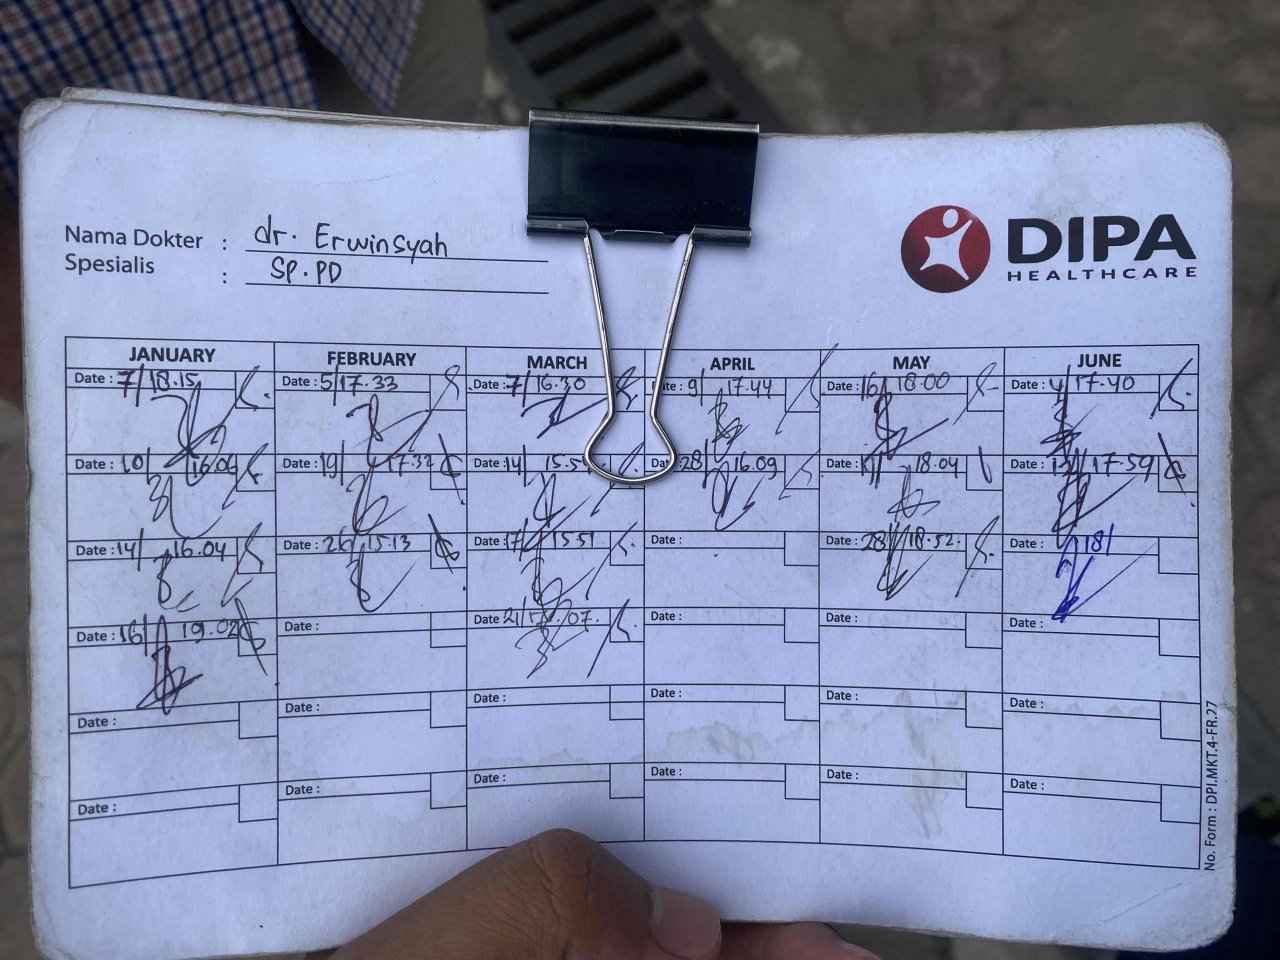 Nama Dokter : dr. Erwinsyah
Spesialis : SP.PD
DIPA
HEALTHCARE
JANUARY FEBRUARY MARCH APRIL MAY JUNE
Date : 7/ 18.15 Date : 5/ 17.33 Date : 7/ 16.30 Date : 9/ 17.44 Date : 16/ 18.00 Date : 4/ 17.40
Date : 10/ 16.06 Date : 19/ 17.32 Date : 14/ Date : 28/ 16.09 Date : 18.04 Date : 17.59
Date : 14/ 16.04 Date : 26/ 15.13 Date : 17/ 15.51 Date : Date : 28/ 18.52. Date : 18/
Date : 16/ 19.02 Date : Date : 21/ Date : Date : Date :
Date : Date : Date : Date : Date : Date :
Date : Date : Date : Date : Date : Date :
No. Form : DPI.MKT.4-FR.27